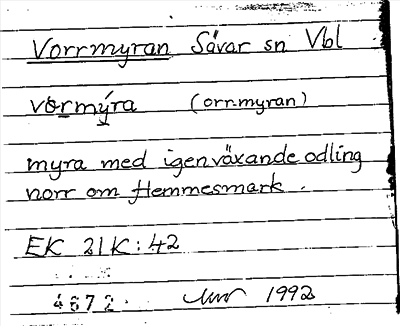 Vorrmyran Sävar sn Vbl
vòrmýra (orrmyran)
myra med igenväxande odling
norr om Hemmesmark.
EK 21K:42
4672. 1992